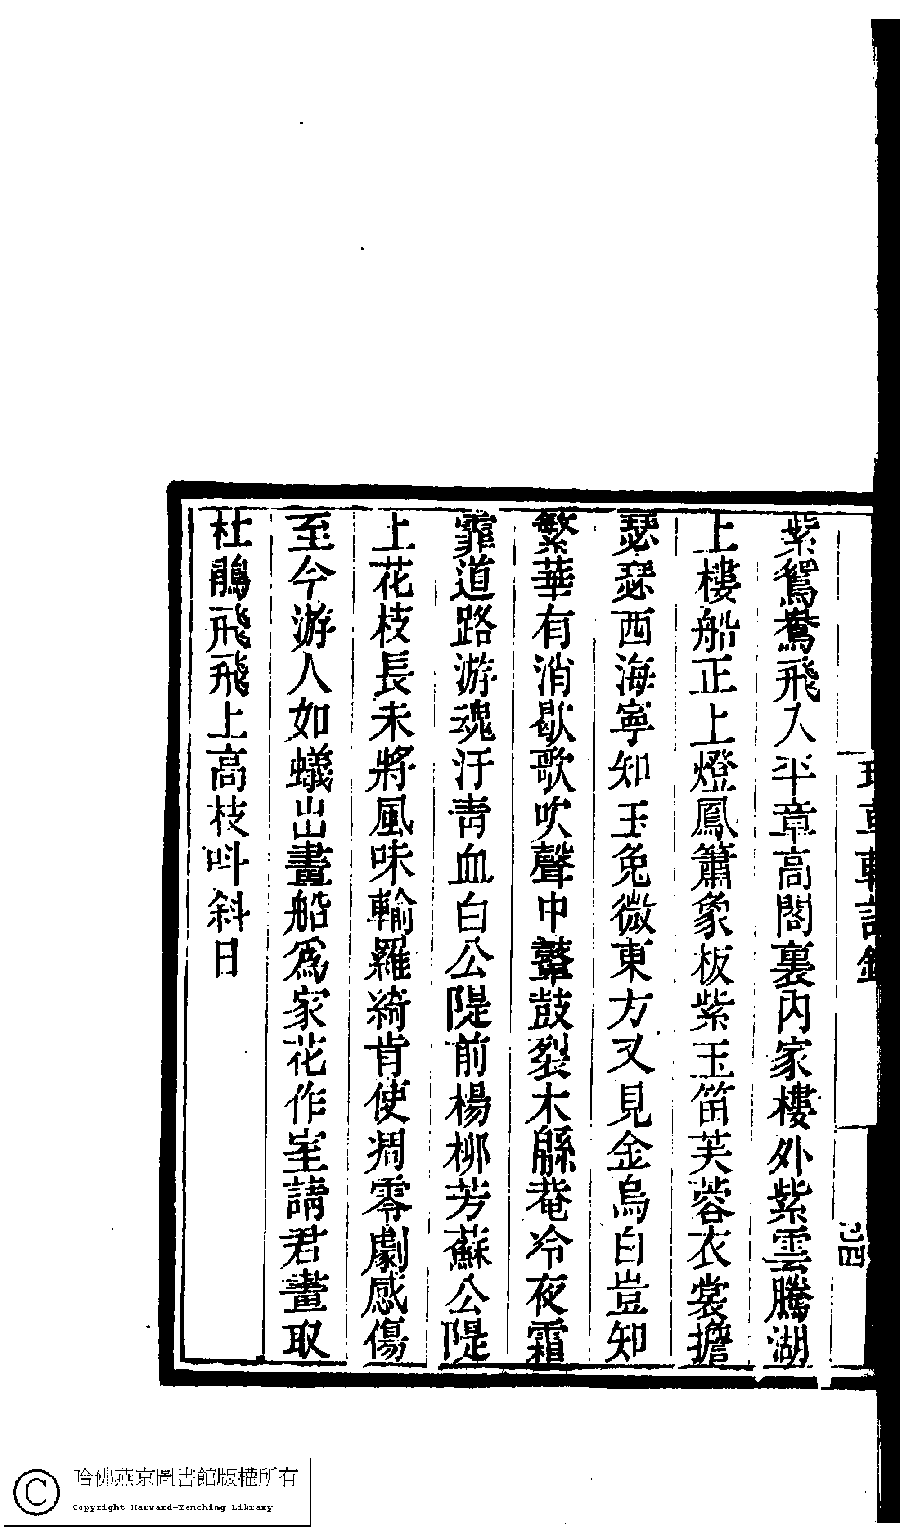 紫鴛鴦飛入平章高閣裏內家樓外紫雲騰湖
上樓船正上燈鳳簫象板紫玉笛芙蓉衣裳擔
瑟瑟西海寧知玉兔微東方又見金烏白豈知
繁華有消歇歌吹聲中鼙鼓裂木緜菴冷夜霜
霏道路游魂汙青血白公隄前楊柳芳蘇公隄
上花枝長未將風味輸羅綺肯使凋零劇感傷
至今游人如蟻出畫船爲家花作室請君畫取
杜鵑飛飛上高枝呌斜日
四
哈佛燕京圖書館版權所有
Copyright Harvard-Yenching Library